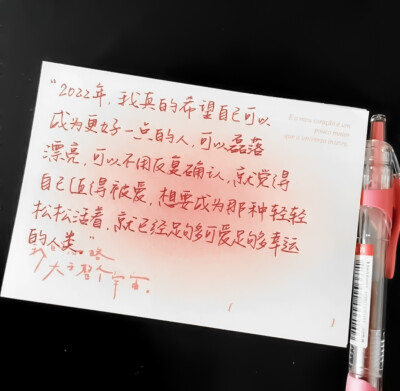 "2022年，我真的希望自己可以
成为更好一点的人，可以磊落
漂亮，可以不用反复确认，就觉得
自己值得被爱，想要成为那种轻轻
松松活着，就已经足够可爱足够幸运
的人类"
大于整个宇宙。